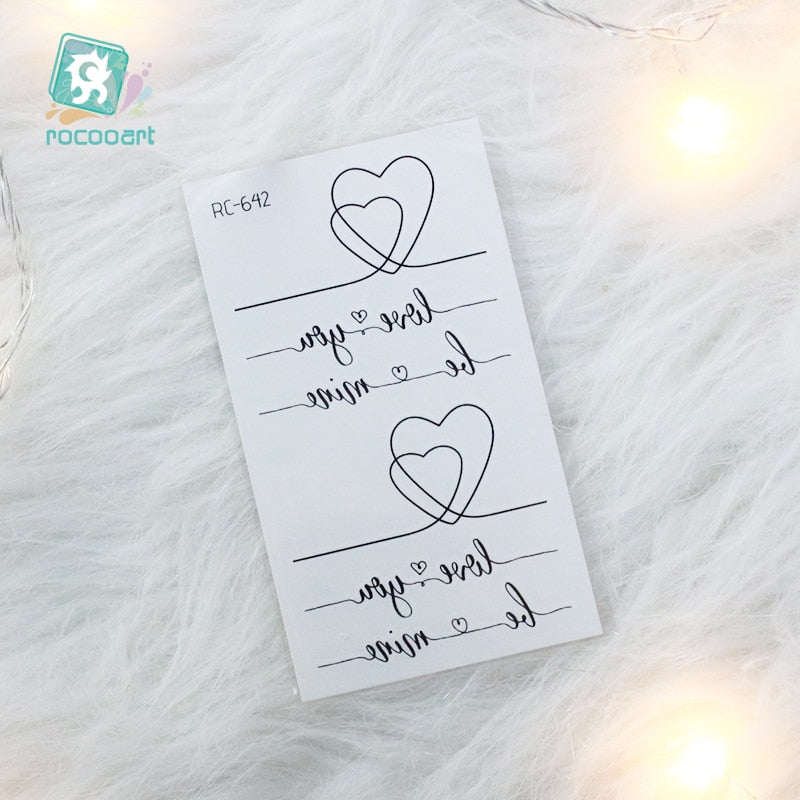 rocooart
RC-642
love you
be mine
love you
be mine